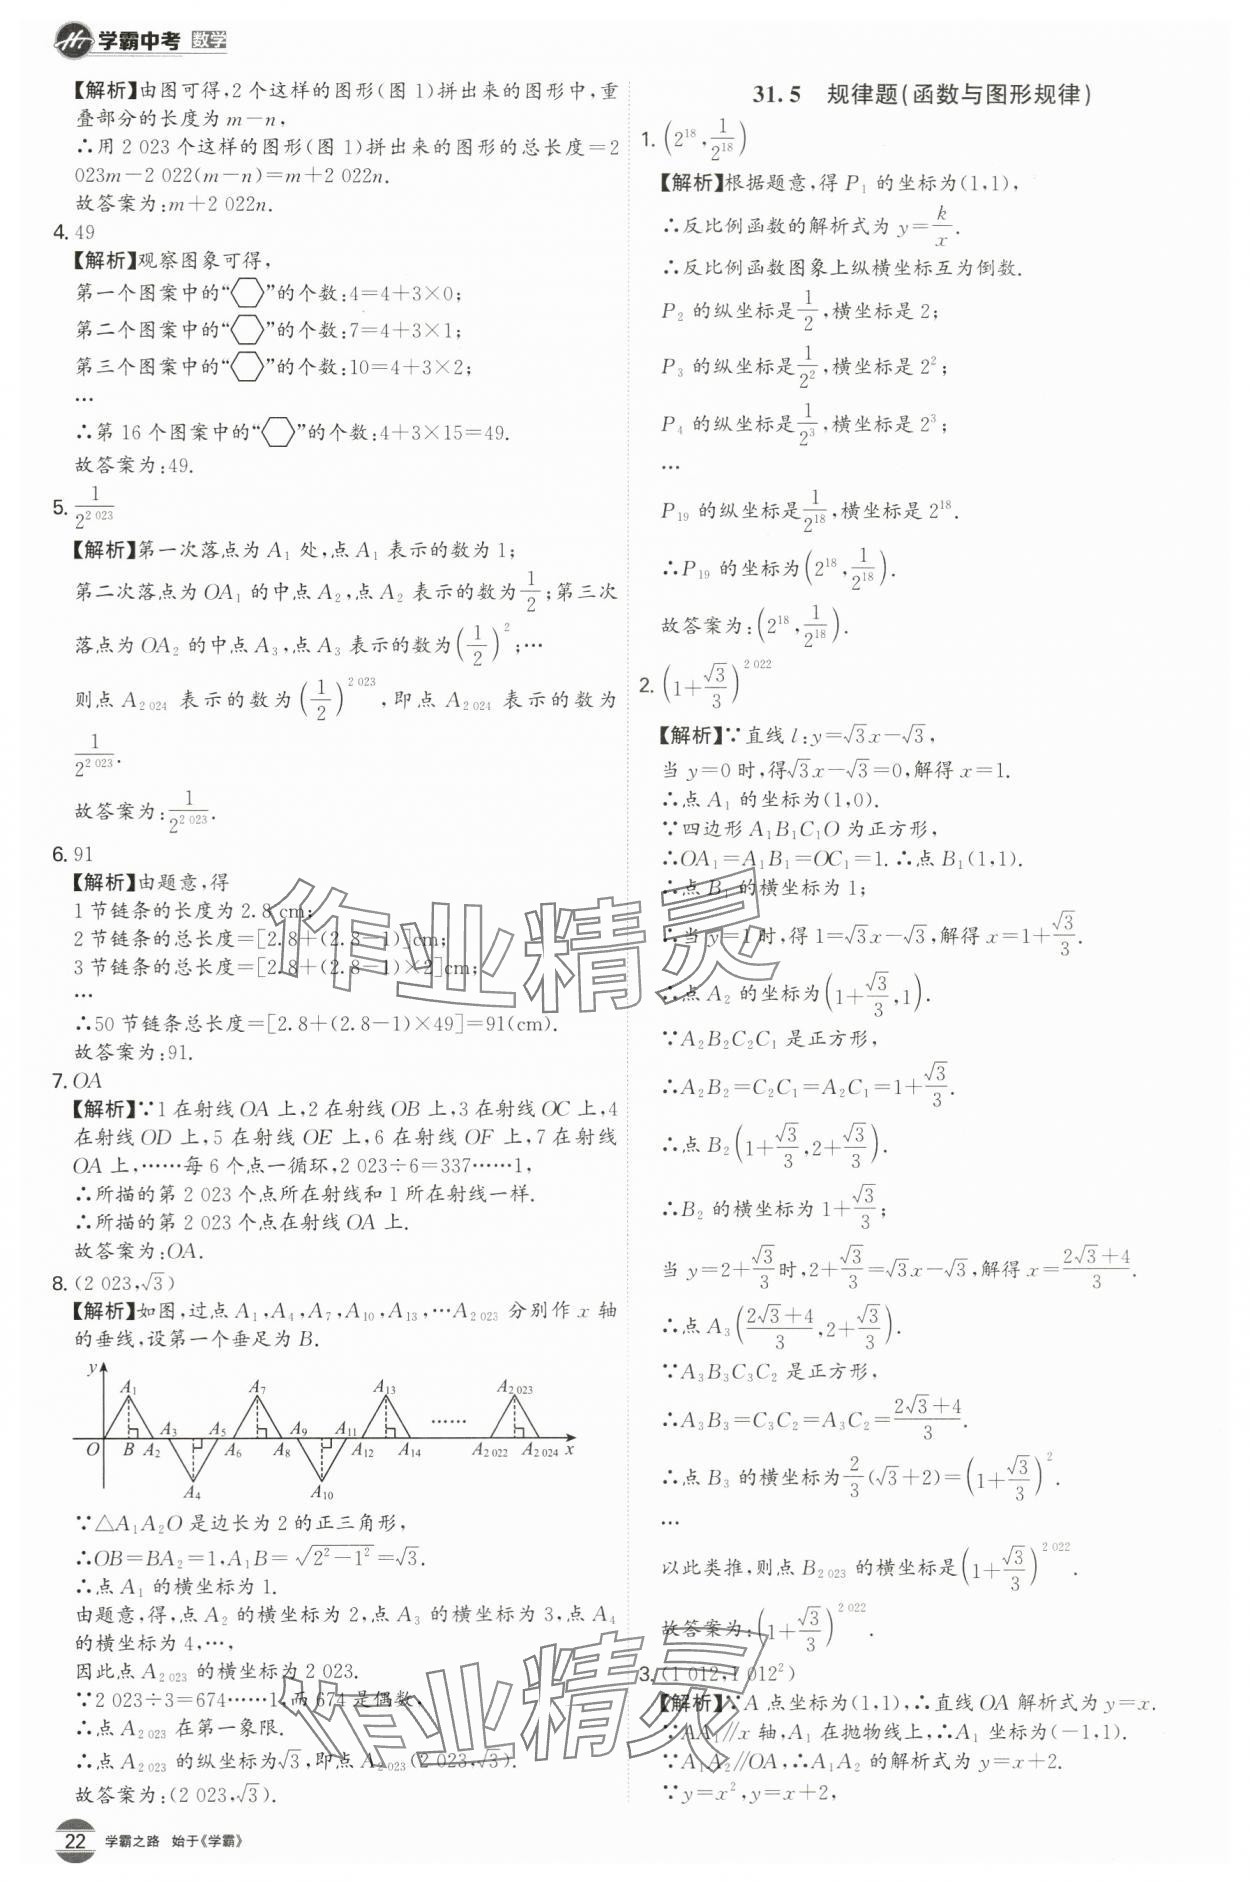 学霸中考 数学
【解析】由图可得,2个这样的图形(图1)拼出来的图形中,重
叠部分的长度为m-n,
∴用2 023个这样的图形(图1)拼出来的图形的总长度=2
023m-2 022(m-n)=m+2 022n.
故答案为:m+2 022n.
4. 49
【解析】观察图象可得,
第一个图案中的“⬡”的个数:4=4+3×0;
第二个图案中的“⬡”的个数:7=4+3×1;
第三个图案中的“⬡”的个数:10=4+3×2;
…
∴第16个图案中的“⬡”的个数:4+3×15=49.
故答案为:49.
5. 1/2^{2 023}
【解析】第一次落点为A₁处,点A₁表示的数为1;
第二次落点为OA₁的中点A₂,点A₂表示的数为1/2;第三次
落点为OA₂的中点A₃,点A₃表示的数为(1/2)²;…
则点A_{2 024}表示的数为(1/2)^{2 023},即点A_{2 024}表示的数为
1/2^{2 023}.
故答案为:1/2^{2 023}.
6. 91
【解析】由题意,得
1节链条的长度为2.8 cm;
2节链条的总长度=[2.8+(2.8-1)]cm;
3节链条的总长度=[2.8+(2.8-1)×2]cm;
…
∴50节链条总长度=[2.8+(2.8-1)×49]=91(cm).
故答案为:91.
7. OA
【解析】∵1在射线OA上,2在射线OB上,3在射线OC上,4
在射线OD上,5在射线OE上,6在射线OF上,7在射线
OA上,……每6个点一循环,2 023÷6=337……1,
∴所描的第2 023个点所在射线和1所在射线一样.
∴所描的第2 023个点在射线OA上.
故答案为:OA.
8. (2 023,√3)
【解析】如图,过点A₁,A₄,A₇,A₁₀,A₁₃,…A_{2 023}分别作x轴
的垂线,设第一个垂足为B.
y
A₁ A₇ A₁₃ A_{2 023}
A₃ A₅ A₉ A₁₁ ……
O B A₂ A₆ A₈ A₁₂ A₁₄ A_{2 022} A_{2 024} x
A₄ A₁₀
∵△A₁A₂O是边长为2的正三角形,
∴OB=BA₂=1,A₁B=√(2²-1²)=√3.
∴点A₁的横坐标为1.
由题意,得,点A₂的横坐标为2,点A₃的横坐标为3,点A₄
的横坐标为4,…,
因此点A_{2 023}的横坐标为2 023.
∵2 023÷3=674……1,而674是偶数,
∴点A_{2 023}在第一象限.
∴点A_{2 023}的纵坐标为√3,即点A_{2 023}(2 023,√3).
故答案为:(2 023,√3).
22 学霸之路 始于《学霸》
31.5 规律题(函数与图形规律)
1. (2^{18},1/2^{18})
【解析】根据题意,得P₁的坐标为(1,1),
∴反比例函数的解析式为y=k/x.
∴反比例函数图象上纵横坐标互为倒数.
P₂的纵坐标是1/2,横坐标是2;
P₃的纵坐标是1/2²,横坐标是2²;
P₄的纵坐标是1/2³,横坐标是2³;
…
P₁₉的纵坐标是1/2^{18},横坐标是2^{18}.
∴P₁₉的坐标为(2^{18},1/2^{18}).
故答案为:(2^{18},1/2^{18}).
2. (1+√3/3)^{2 022}
【解析】∵直线l:y=√3x-√3,
当y=0时,得√3x-√3=0,解得x=1.
∴点A₁的坐标为(1,0).
∵四边形A₁B₁C₁O为正方形,
∴OA₁=A₁B₁=OC₁=1.∴点B₁(1,1).
∴点B₁的横坐标为1;
∴当y=1时,得1=√3x-√3,解得x=1+√3/3.
∴点A₂的坐标为(1+√3/3,1).
∵A₂B₂C₂C₁是正方形,
∴A₂B₂=C₂C₁=A₂C₁=1+√3/3.
∴点B₂(1+√3/3,2+√3/3).
∴B₂的横坐标为1+√3/3;
当y=2+√3/3时,2+√3/3=√3x-√3,解得x=(2√3+4)/3.
∴点A₃((2√3+4)/3,2+√3/3).
∵A₃B₃C₃C₂是正方形,
∴A₃B₃=C₃C₂=A₃C₂=(2√3+4)/3.
∴点B₃的横坐标为2/3(√3+2)=(1+√3/3)².
…
以此类推,则点B_{2 023}的横坐标是(1+√3/3)^{2 022}.
故答案为:(1+√3/3)^{2 022}.
3. (1 012,1 012²)
【解析】∵A点坐标为(1,1),∴直线OA解析式为y=x.
∵AA₁∥x轴,A₁在抛物线上,∴A₁坐标为(-1,1).
∵A₁A₂∥OA,∴A₁A₂的解析式为y=x+2.
∵y=x²,y=x+2,
作业精灵
作业精灵